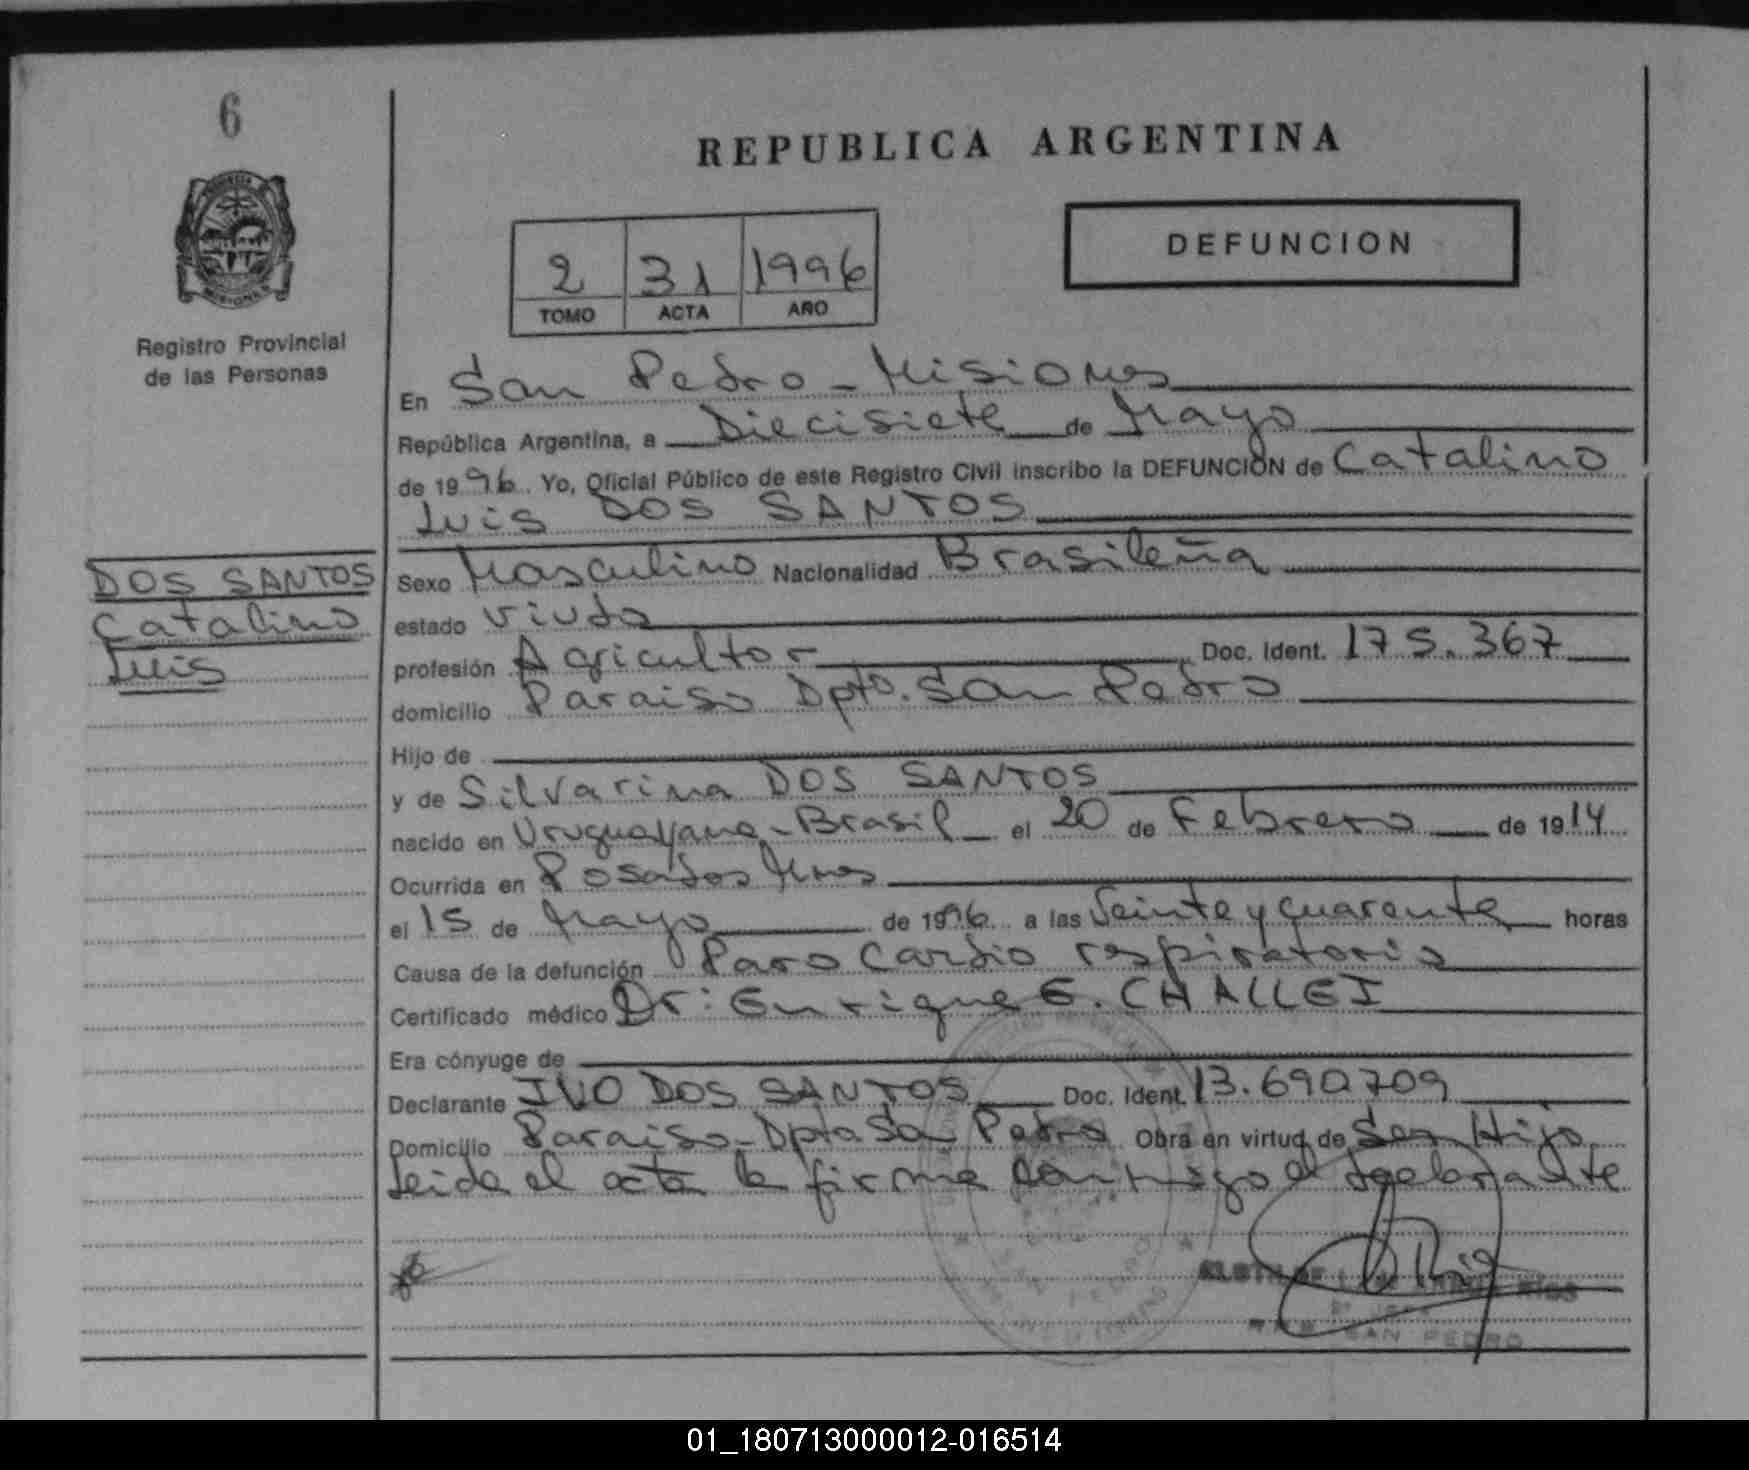 6
REPUBLICA ARGENTINA
DEFUNCION
2 31 1996
TOMO ACTA AÑO
MISIONES
Registro Provincial
de las Personas
En San Pedro - Misiones
República Argentina, a Diecisiete de Mayo
de 1996. Yo, Oficial Público de este Registro Civil inscribo la DEFUNCION de Catalino
Luis DOS SANTOS
DOS SANTOS
Catalino
Luis
Sexo Masculino Nacionalidad Brasileña
estado viudo
profesión Agricultor Doc. Ident. 175.367
domicilio Paraiso Dpto. San Pedro
Hijo de
y de Silvarina DOS SANTOS
nacido en Uruguayana - Brasil el 20 de Febrero de 1914
Ocurrida en Posadas Mnes
el 15 de Mayo de 1996 a las Veinte y cuarenta horas
Causa de la defunción Paro Cardio respiratorio
Certificado médico Dr: Enrique E. CHALLEI
Era cónyuge de
Declarante IVO DOS SANTOS Doc. Ident. 13.690709
Domicilio Paraiso - Dpto San Pedro Obra en virtud de Ser Hijo
Leida el acta la firma conmigo el declarante
SAN PEDRO
01_180713000012-016514